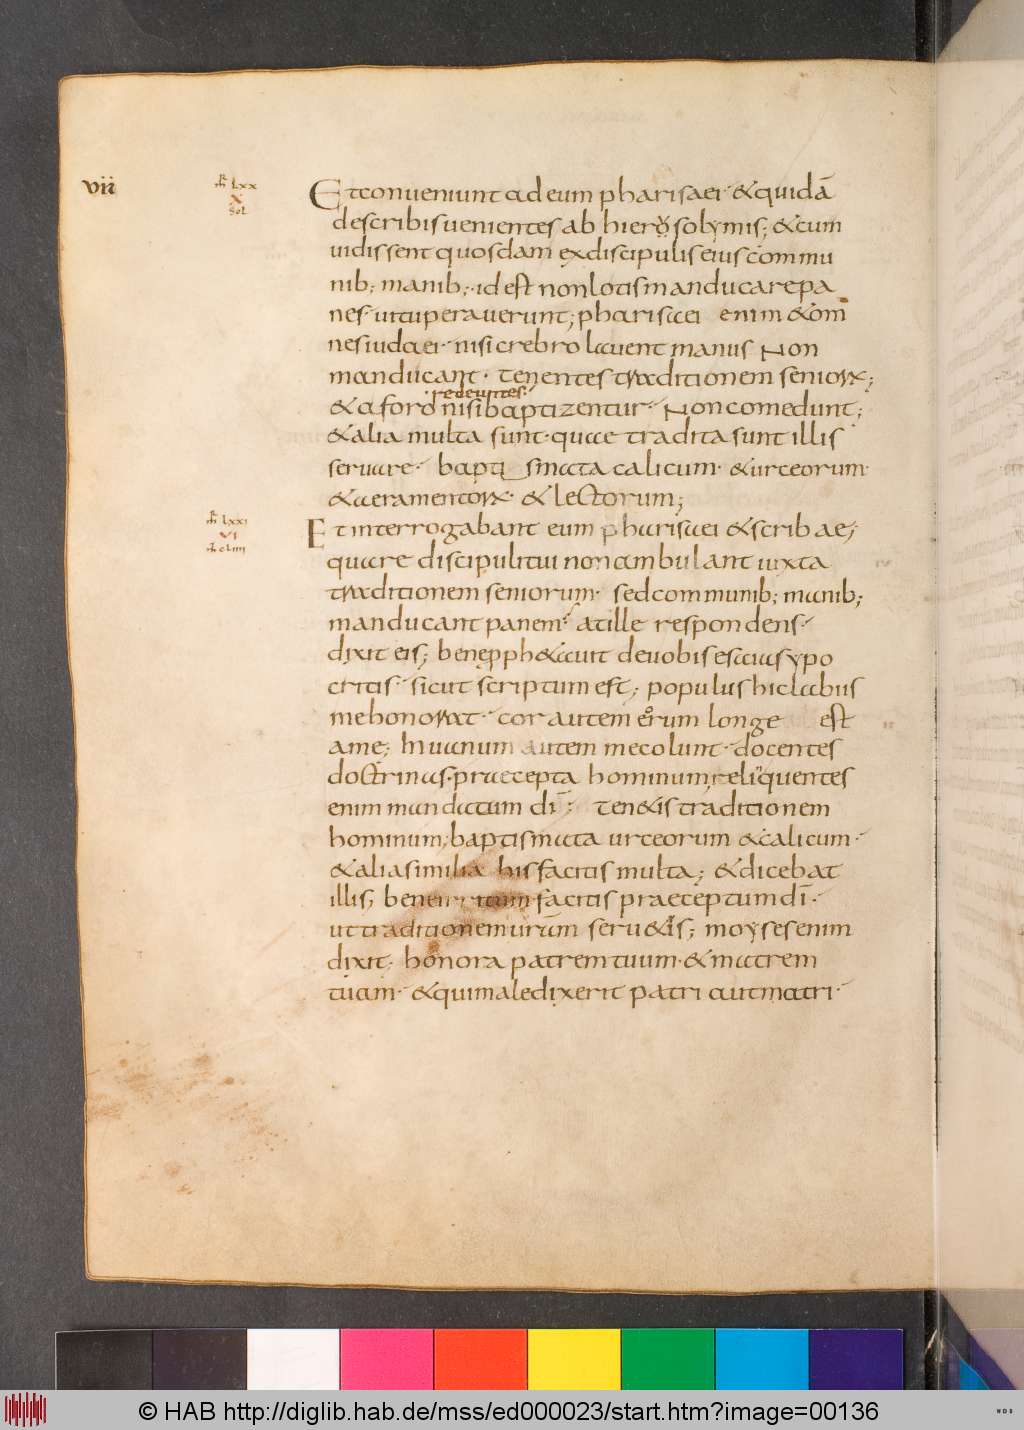 vii
mr Lxx
X
Sol
Et conueniunt ad eum pharisaei· & quidā
de scribis uenientes ab hierosolymis; & cum
uidissent quosdam ex discipulis eius commu
nib; manib;· id est non lotis manducare pa
nes· uituperauerunt; pharisaei enim & om̄
nes iudaei· nisi crebro lauent manus Non
manducant· tenentes traditionem seniorꝝ;
·redeuntes·
& a foro nisi baptizentur· Non comedunt;
& alia multa sunt· quae tradita sunt illis
seruare· baptismata calicum· & urceorum·
& aeramentorꝝ· & lectorum;
mr Lxxi
VI
mt cliiii
Et interrogabant eum pharisaei & scribae;
quare discipuli tui non ambulant iuxta
traditionem seniorum· sed communib; manib;
manducant panem· at ille respondens·
dixit eis; bene proph&auit de uobis esaias ypo
critis· sicut scriptum est; populus hic labiis
me honorat· cor autem eorum longe est
a me; In uanum autem me colunt· docentes
doctrinas· praecepta hominum; relinquentes
enim mandatum dī; ten&is traditionem
hominum; baptismata urceorum & calicum·
& alia similia his facitis multa; & dicebat
illis; bene irritum facitis praeceptum dī·
ut traditionem urām seru&is; moyses enim
dixit; honora patrem tuum· & matrem
tuam· & qui maledixerit patri aut matri·
© HAB http://diglib.hab.de/mss/ed000023/start.htm?image=00136